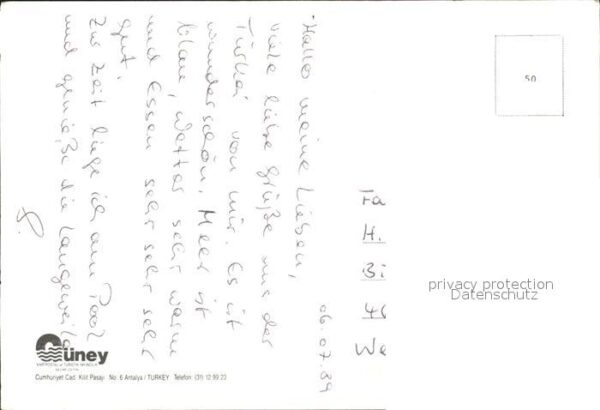 06.07.89
"Hallo meine Lieben,
viele liebe Grüße aus der
Türkei von mir. Es ist
wunderschön. Meer ist
blau, Wetter sehr warm
und Essen sehr sehr sehr
gut.
Zur Zeit liege ich am Pool
und genieße die Langeweile
50
Fa
H.
Bi
We
privacy protection
Datenschutz
Güney
Cumhuriyet Cad. Kilit Pasajı No: 6 Antalya / TURKEY Telefon: (31) 12 99 22